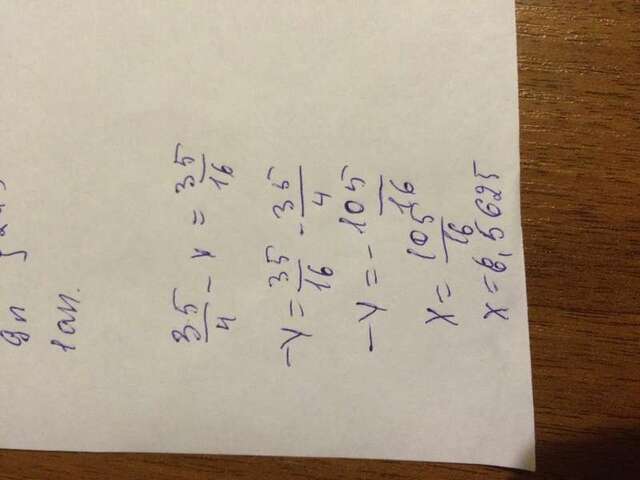 9л
1ал.
35/4 - x = 35/16
-x = 35/16 - 35/4
-x = - 105/16
x = 105/16
x = 6,5625